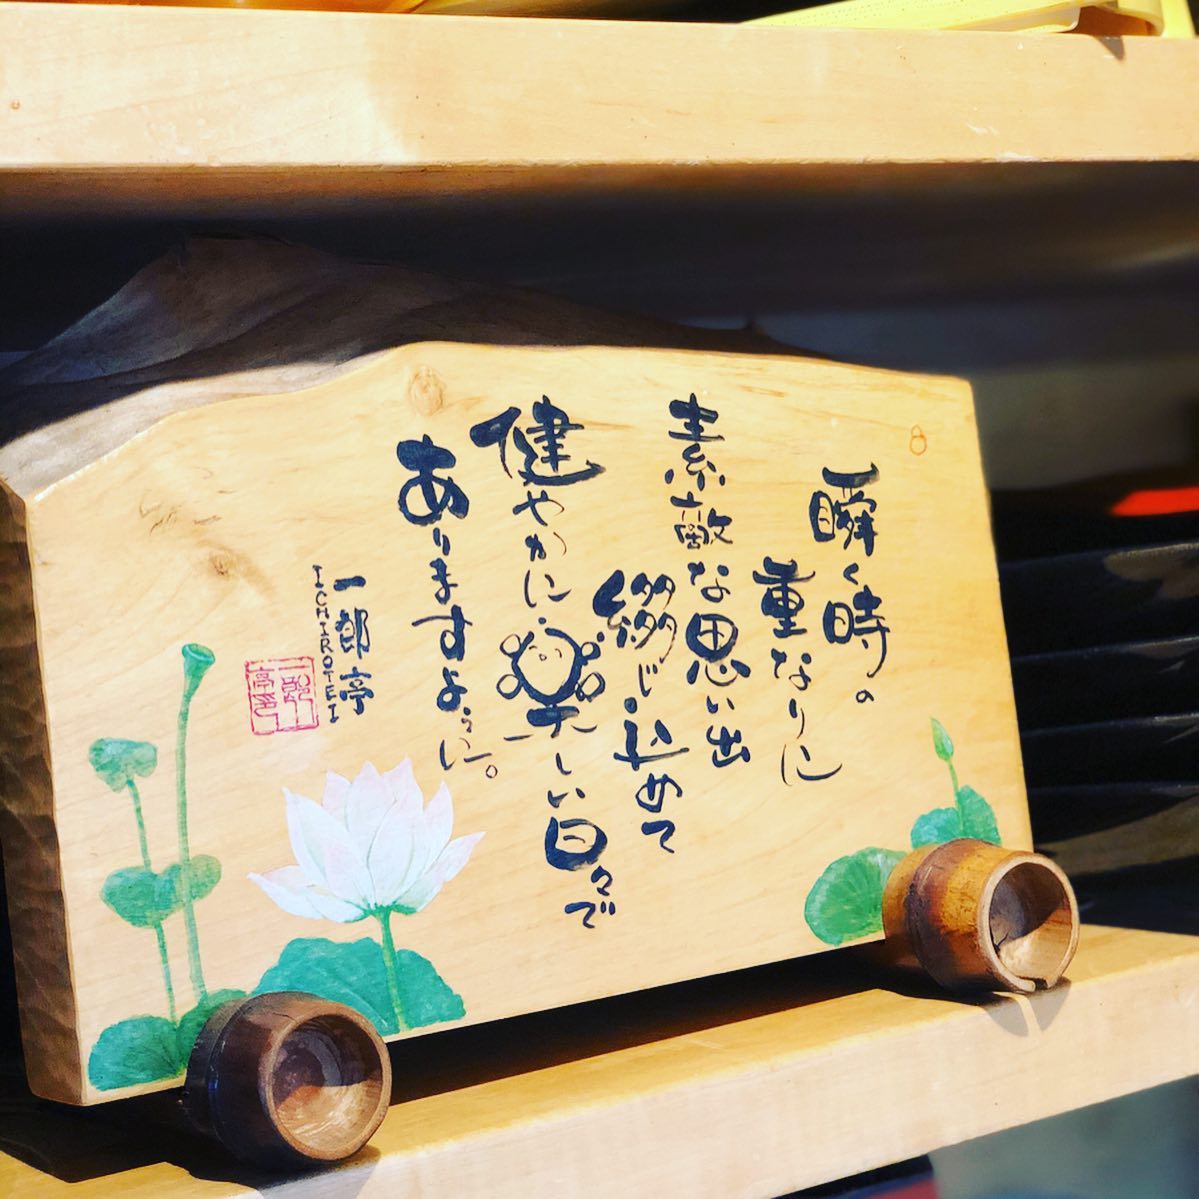 瞬く時の
重なりに
素敵な思い出
綴じ込めて
健やかに楽しい日々で
ありますように。
一郎亭
ICHIROTEI